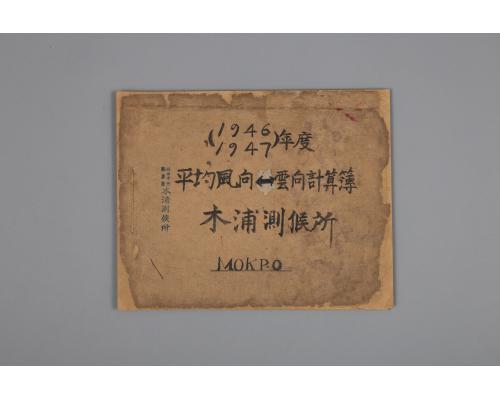 (1946
1947)年度
平均風向⬌雲向計算簿
木浦測候所
MOKPO
木浦測候所